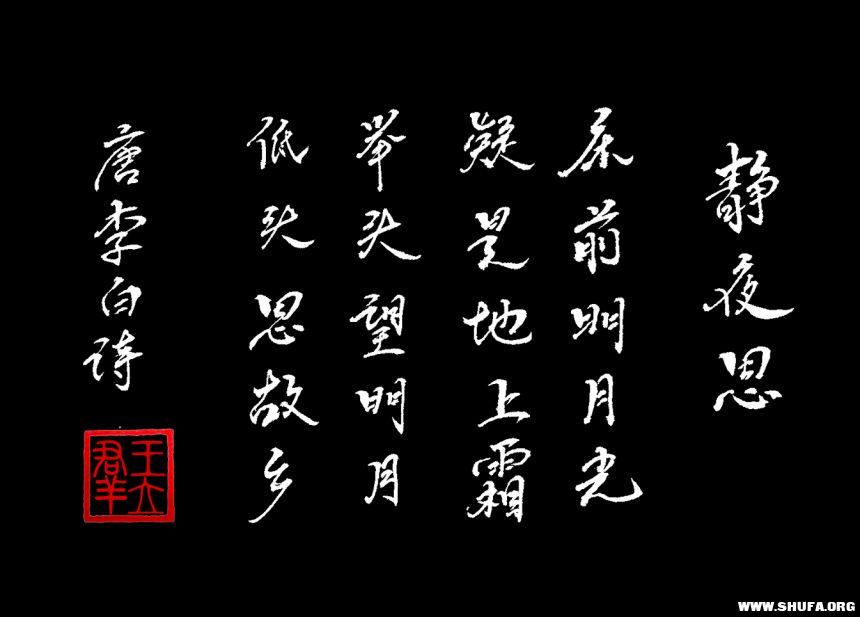 静夜思
床前明月光
疑是地上霜
举头望明月
低头思故乡
唐李白诗
王立群
WWW.SHUFA.ORG